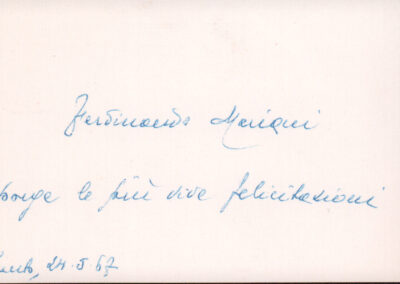 Ferdinando Marighi
porge le più vive felicitazioni
24.5.67